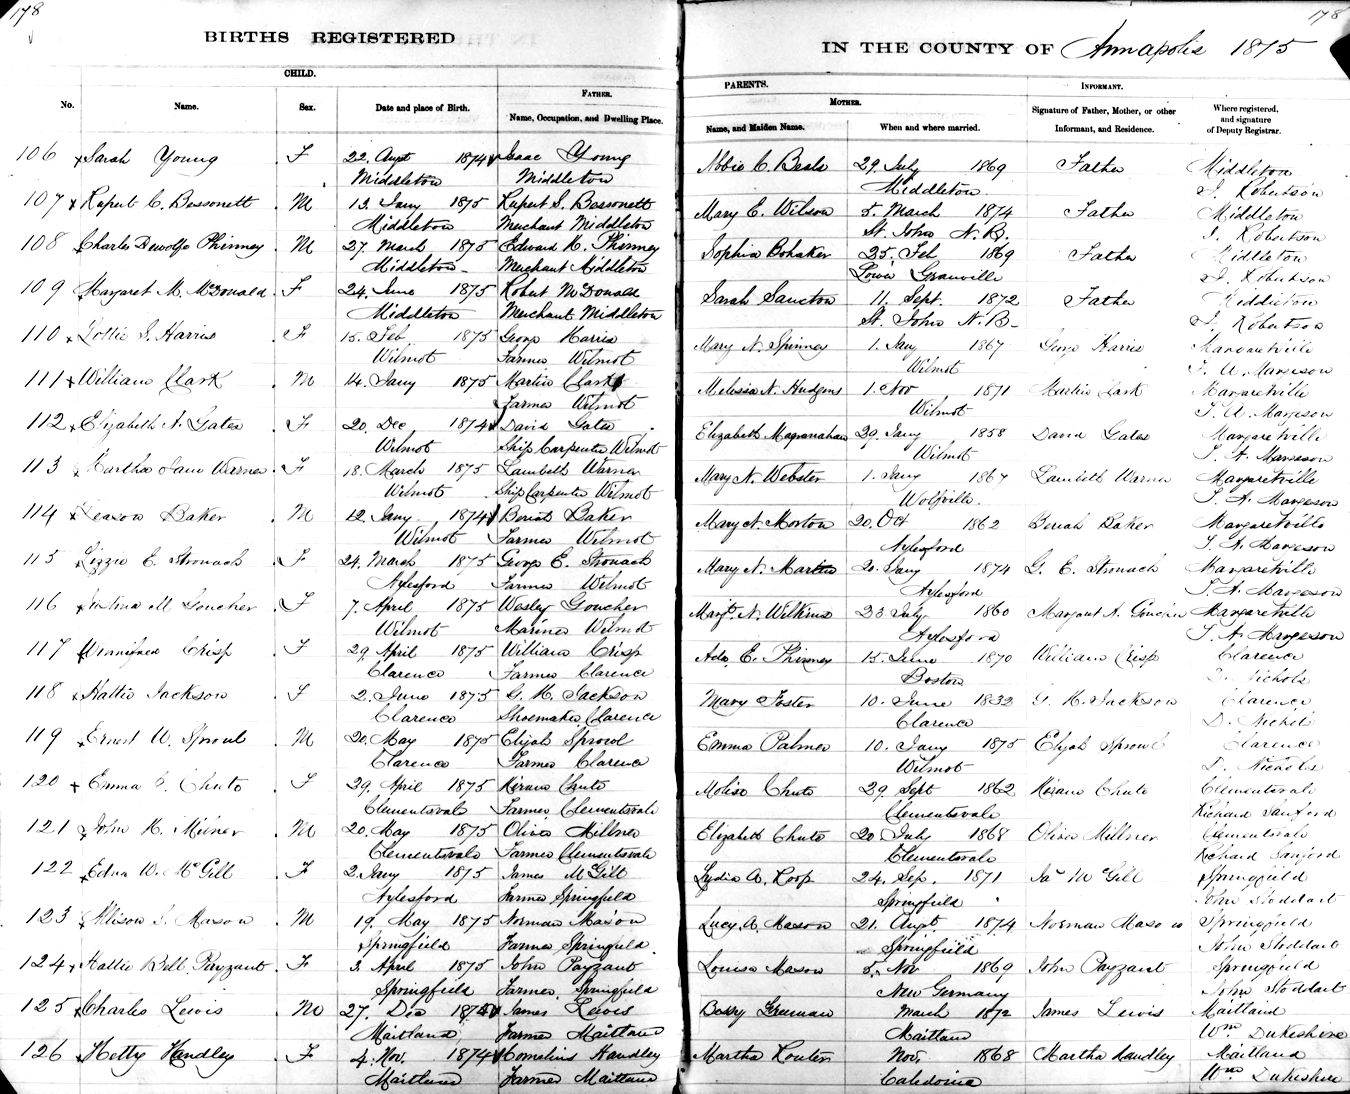 178
178
BIRTHS REGISTERED
IN THE COUNTY OF Annapolis 1875
CHILD.
PARENTS.
No. Name. Sex. Date and place of Birth. FATHER. Name, Occupation, and Dwelling Place.
MOTHER. Name, and Maiden Name. When and where married.
INFORMANT. Signature of Father, Mother, or other Informant, and Residence.
Where registered, and signature of Deputy Registrar.
106 Sarah Young F 22. Augt 1874 Isaac Young Abbie C. Beals 29. July 1869 Father Middleton
Middleton Middleton Middleton J. Robertson
107 Rupert C. Bessonett M 13 Jany 1875 Rupert S. Bessonett Mary E. Wilson 5. March 1874 Father Middleton
Middleton Merchant Middleton St. John N. B. J. Robertson
108 Charles Dewolfe Phinney M 27. March 1875 Edward R. Phinney Sophia Bohaker 25. Feb 1869 Father Middleton
Middleton Merchant Middleton Lower Granville J. Robertson
109 Margaret M. McDonald F 24. June 1875 Robert McDonald Sarah Sancton 11. Sept. 1872 Father Middleton
Middleton Merchant Middleton St. John N. B. J. Robertson
110 Lottie S. Harris F 15. Feb 1875 George Harris Mary N. Spinney 1. Jany 1867 George Harris Margaretville
Wilmot Farmer Wilmot Wilmot T. A. Margeson
111 William Clark M 14. Jany 1875 Martin Clark Melissa N. Hudgins 1. Nov 1871 Martin Clark Margaretville
Farmer Wilmot Wilmot T. A. Margeson
112 Elizabeth A. Gates F 20. Dec 1874 David Gates Elizabeth Magranahan 29. Jany 1858 David Gates Margaretville
Wilmot Ship Carpenter Wilmot Wilmot T. A. Margeson
113 Martha Jane Warner F 18. March 1875 Lambeth Warner Mary N. Webster 1. Jany 1867 Lambeth Warner Margaretville
Wilmot Ship Carpenter Wilmot Wolfville T. A. Margeson
114 Baker M 12. Jany 1874 Beriah Baker Mary N. Morton 20. Oct 1862 Beriah Baker Margaretville
Wilmot Farmer Wilmot Aylesford T. A. Margeson
115 Lizzie E. Stronach F 24. March 1875 George E. Stronach Mary N. Martin 20. Jany 1874 G. E. Stronach Margaretville
Aylesford Farmer Wilmot Aylesford T. A. Margeson
116 Justina M Goucher F 7. April 1875 Wesley Goucher Margt. N. Wilkins 23 July 1860 Margaret A. Goucher Margaretville
Wilmot Mariner Wilmot Aylesford T. A. Margeson
117 Winnifred Crisp F 29 April 1875 William Crisp Ada. E. Phinney 15. June 1870 William Crisp Clarence
Clarence Farmer Clarence Boston D. Nichols
118 Hattie Jackson F 2. June 1875 G. H. Jackson Mary Foster 10. June 1832 G. H. Jackson Clarence
Clarence Shoemaker Clarence Clarence D. Nichols
119 Ernest W. Sproul M 20. May 1875 Elijah Sprowl Emma Palmer 10. Jany 1875 Elijah Sprowl Clarence
Clarence Farmer Clarence Wilmot D. Nichols
120 Emma Chute F 29. April 1875 Hiram Chute Chute 29 Sept 1862 Hiram Chute Clementsvale
Clementsvale Farmer Clementsvale Clementsvale Richard Sanford
121 John H. Milner M 20. May 1875 Oliver Millner Elizabeth Chute 20 July 1868 Oliver Millner Clementsvale
Clementsvale Farmer Clementsvale Clementsvale Richard Sanford
122 Edna W. McGill F 2. Jany 1875 James McGill Lydia A. Roop 24. Sep. 1871 Jas McGill Springfield
Aylesford Farmer Springfield Springfield John Stoddart
123 Allison S. Mason M 19. May 1875 Norman Mason Lucy. A. Mason 21. Augt. 1874 Norman Mason Springfield
Springfield Farmer Springfield Springfield John Stoddart
124 Hattie Bell Payzant F 3. April 1875 John Payzant Louisa Mason 5. Nov 1869 John Payzant Springfield
Springfield Farmer. Springfield New Germany John Stoddart
125 Charles Lewis M 27. Dec 1874 James Lewis Bessy Freeman March 1872 James Lewis Maitland
Maitland Farmer Maitland Maitland Wm Dukeshire
126 Hetty Handley F 4. Nov. 1874 Cornelius Handley Martha Nov. 1868 Martha Handley Maitland
Maitland Farmer Maitland Caledonia Wm. Dukeshire